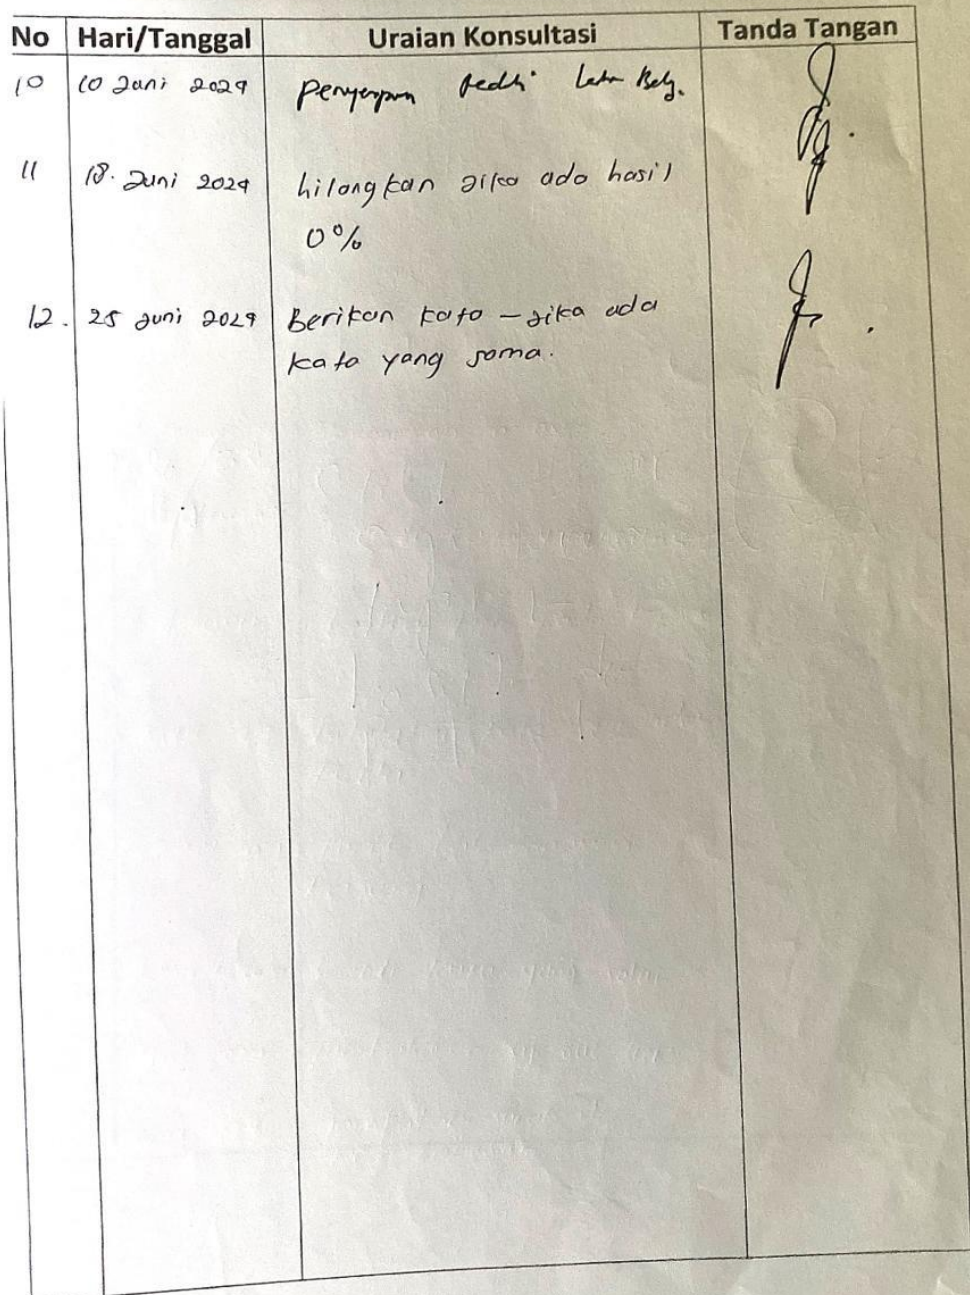 No Hari/Tanggal Uraian Konsultasi Tanda Tangan
10 10 Juni 2024
11 18. Juni 2024 hilangkan jika ada hasil
0%
12. 25 Juni 2024 Berikan kata - jika ada
kata yang sama.